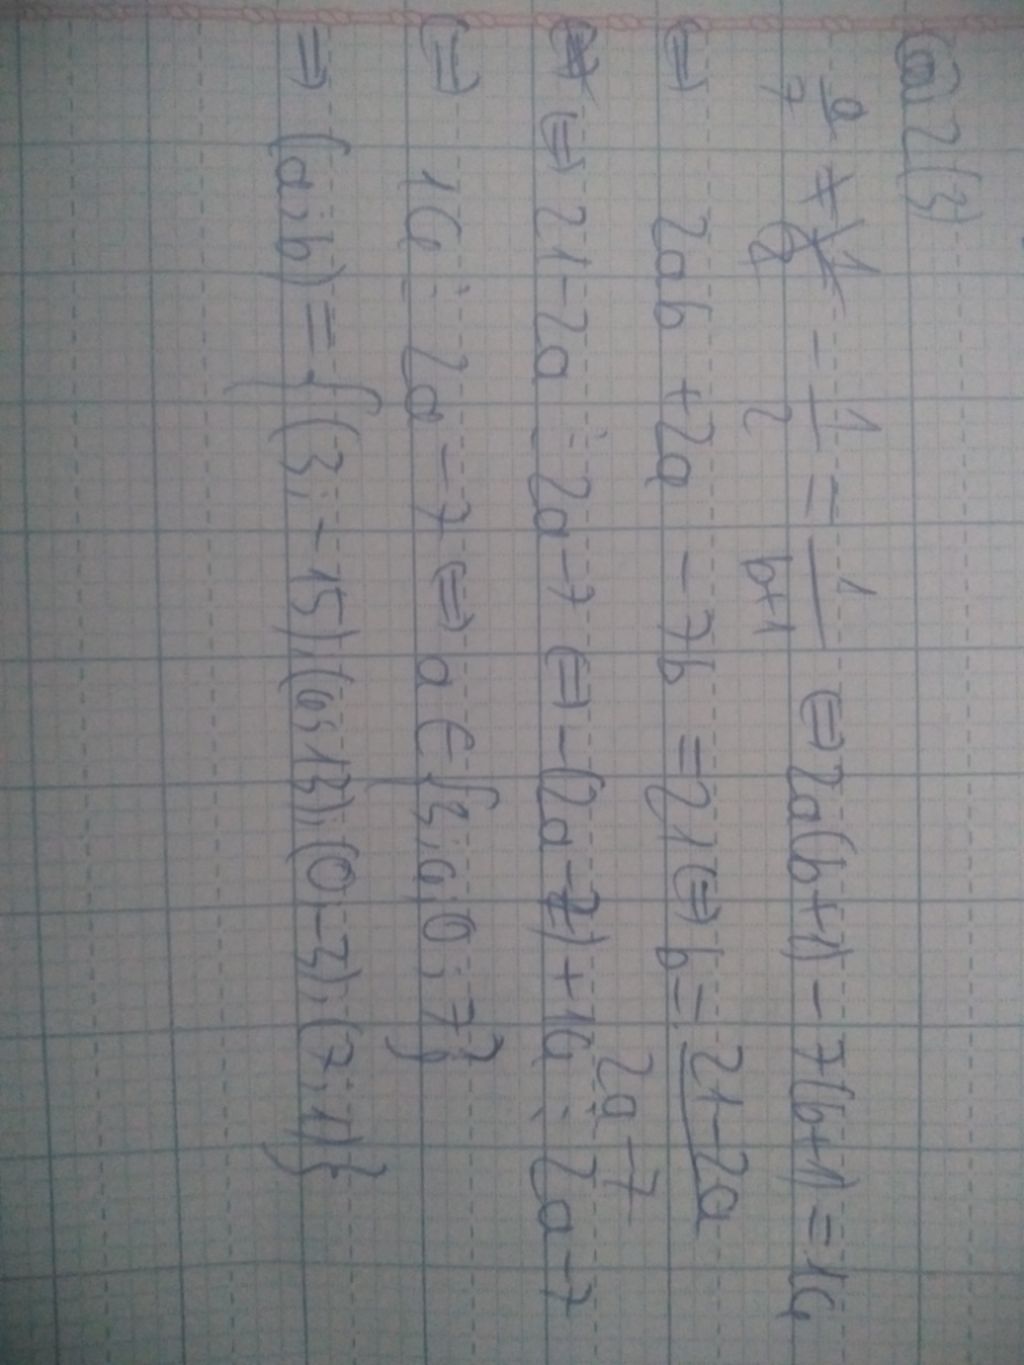 Bài 2 (3)
a/7 - 1/2 = 1/b+1 ⇔ 2a(b+1) - 7(b+1) = 14
⇔ 2ab + 2a - 7b = 21 ⇔ b = 21-2a/2a-7
⇔ 21-2a ⋮ 2a-7 ⇔ -(2a-7) + 14 ⋮ 2a-7
⇔ 14 ⋮ 2a-7 ⇔ a ∈ {3; 4; 0; 7}
⇒ (a;b) = {(3; -15); (4; 13); (0; -3); (7; 1)}